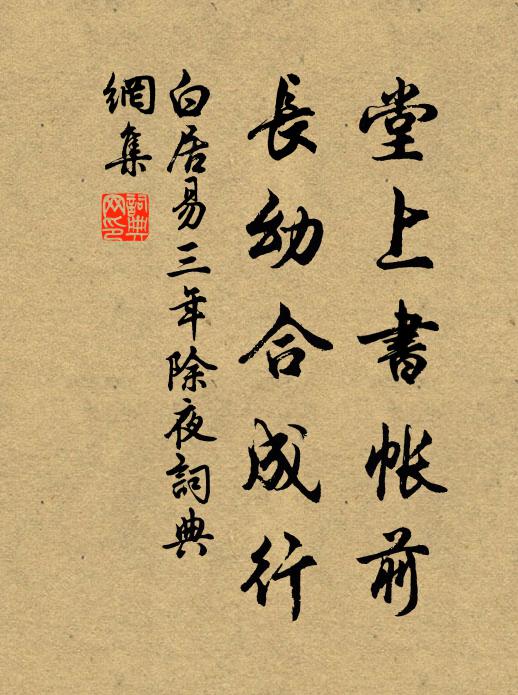 堂上書帳前
長幼合成行
白居易三年除夜詞典
網集
詞典
网印